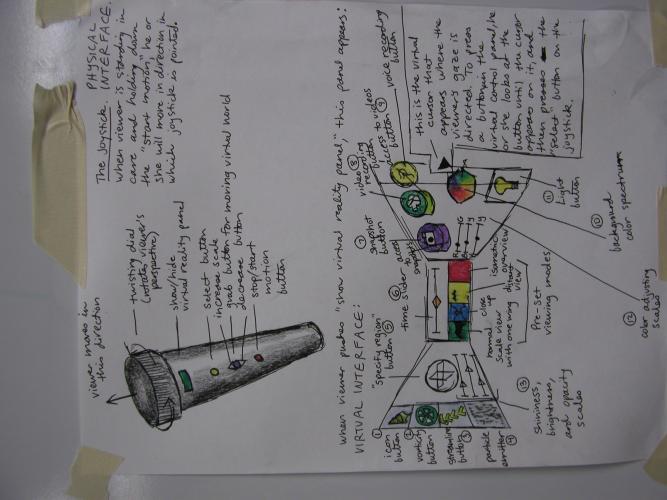 PHYSICAL
INTERFACE.
The Joystick.
when viewer is standing in
cave and holding down
the "start motion", he or
she will move in direction in
which joystick is pointed.
viewer moves in
this direction
twisting dial
(rotates viewer's
perspective)
show/hide
virtual reality panel
select button
increase scale
grab button for moving virtual world
decrease button
stop/start
motion
button
when viewer pushes "show virtual reality panel" this panel appears:
VIRTUAL INTERFACE:
this is the virtual
cursor that
appears where the
viewer's gaze is
directed. To press
a button in the
virtual control panel, he
or she looks at the
button until the cursor
appears on it, and
then presses the
"select" button on the
joystick.
① icon
button
② vorticity
button
③ streamline
button
④ particle
emitter
"specify region"
button ⑤
⑥ time slider
⑦ snapshot
button
access
to
snapshots
⑧ video
recording
button
access to videos
button
⑨ voice recording
button
normal
scale
close
up
view
with one wing
distant
view
isometric
overview
Pre-set
viewing modes.
R G
B Y
⑩ background
color spectrum
⑪ Light
button
⑫ color adjusting
scales
⑬ shininess,
brightness,
and opacity
scales